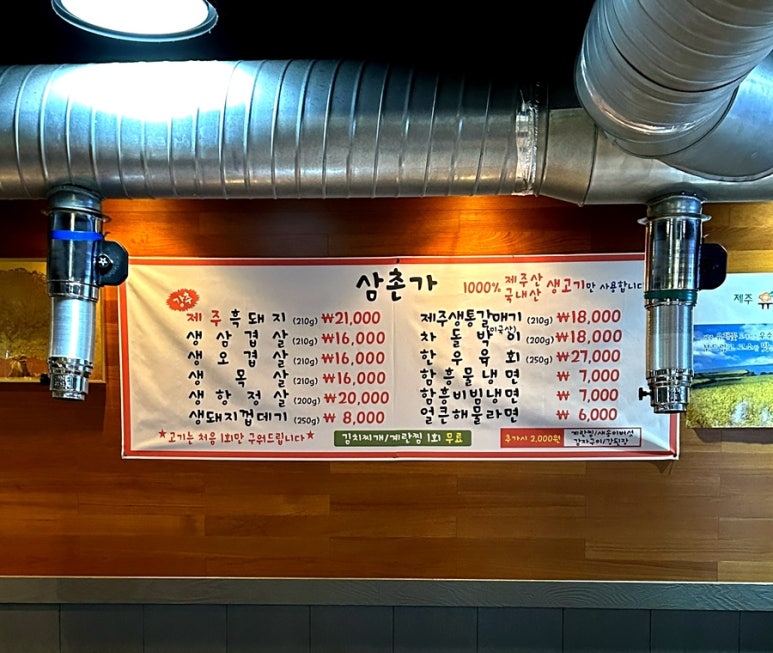 삼촌가
1000% 제주산 국내산 생고기만 사용합니다
강추
제주흑돼지 (210g) ₩21,000
생삼겹살 (210g) ₩16,000
생오겹살 (210g) ₩16,000
생목살 (210g) ₩16,000
생항정살 (200g) ₩20,000
생돼지껍데기 (250g) ₩8,000
★고기는 처음 1회만 구워드립니다★
제주생통갈매기 (210g) ₩18,000
차돌박이 (미국산) (200g) ₩18,000
한우육회 (250g) ₩27,000
함흥물냉면 ₩7,000
함흥비빔냉면 ₩7,000
얼큰해물라면 ₩6,000
김치찌개/계란찜 1회 무료
추가시 2,000원
계란찜/새송이버섯
감자구이/강된장
제주